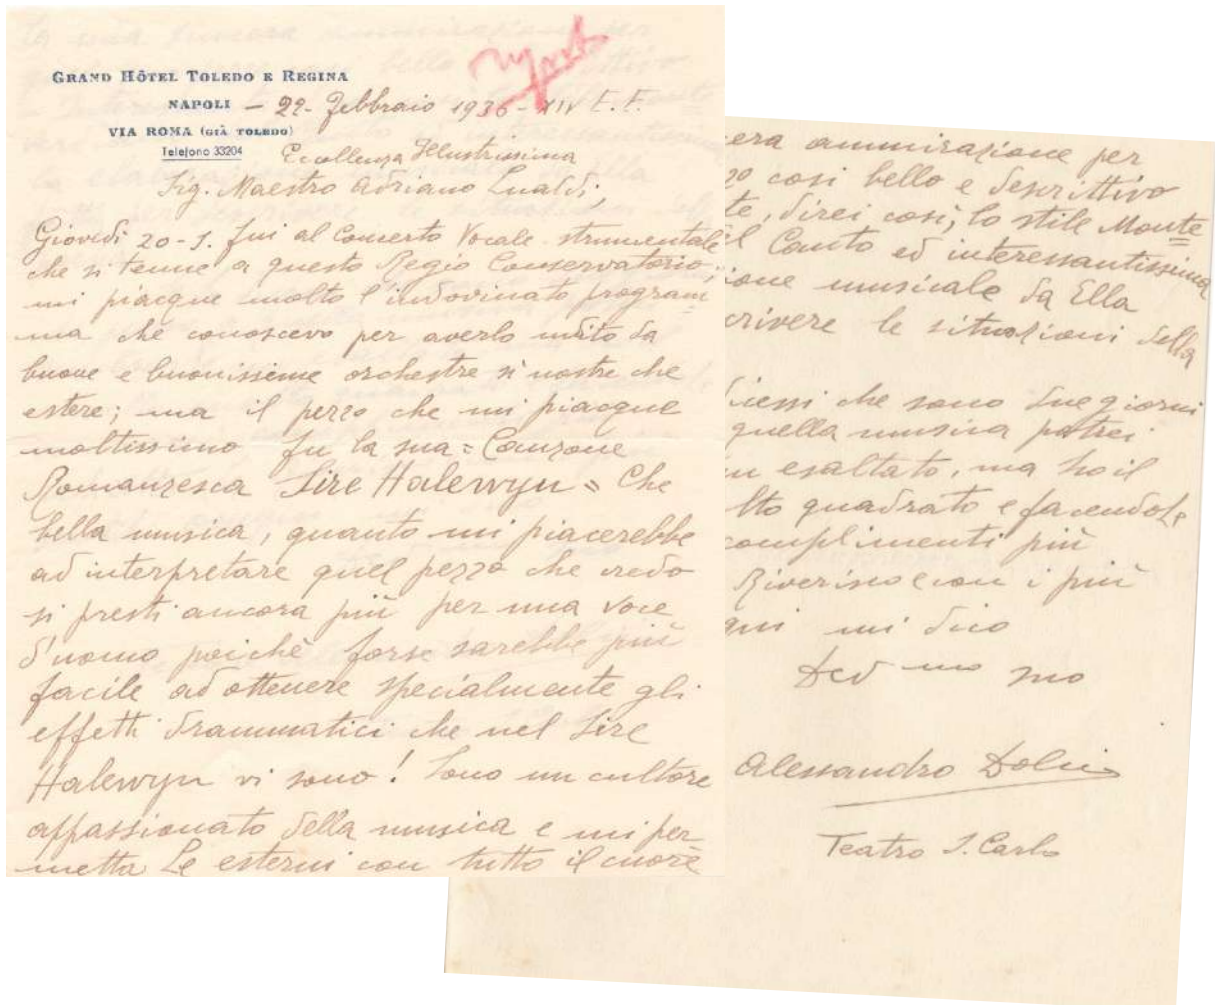 GRAND HÔTEL TOLEDO E REGINA
NAPOLI – 22- Febbraio 1936-XIV E. F.
VIA ROMA (GIÀ TOLEDO)
Telefono 33204
Eccellenza Illustrissima
Sig. Maestro Adriano Lualdi,
Giovedì 20-S. fui al Concerto Vocale strumentale
che si tenne a questo Regio Conservatorio,
mi piacque molto l'indovinato program
ma che conoscevo per averlo udito da
buone e buonissime orchestre sì nostre che
estere; ma il pezzo che mi piacque
moltissimo fu la sua = Canzone
Romanzesca Sire Halewyn = Che
bella musica, quanto mi piacerebbe
ad interpretare quel pezzo che credo
si presti ancora più per una voce
d'uomo poichè forse sarebbe più
facile ad ottenere specialmente gli
effetti drammatici che nel Sire
Halewyn vi sono! Sono un cultore
appassionato della musica e mi per
metta Le esterni con tutto il cuore
era ammirazione per
zo così bello e descrittivo
te, direi così, lo stile Monte
l Canto ed interessantissima
ione musicale da Ella
crivere le situazioni della
icessi che sono due giorni
quella musica potrei
un esaltato, ma ho il
lto quadrato e facendole
complimenti più
Riverisco e con i più
qui mi dico
Dev mo suo
Alessandro Dolci
Teatro S. Carlo